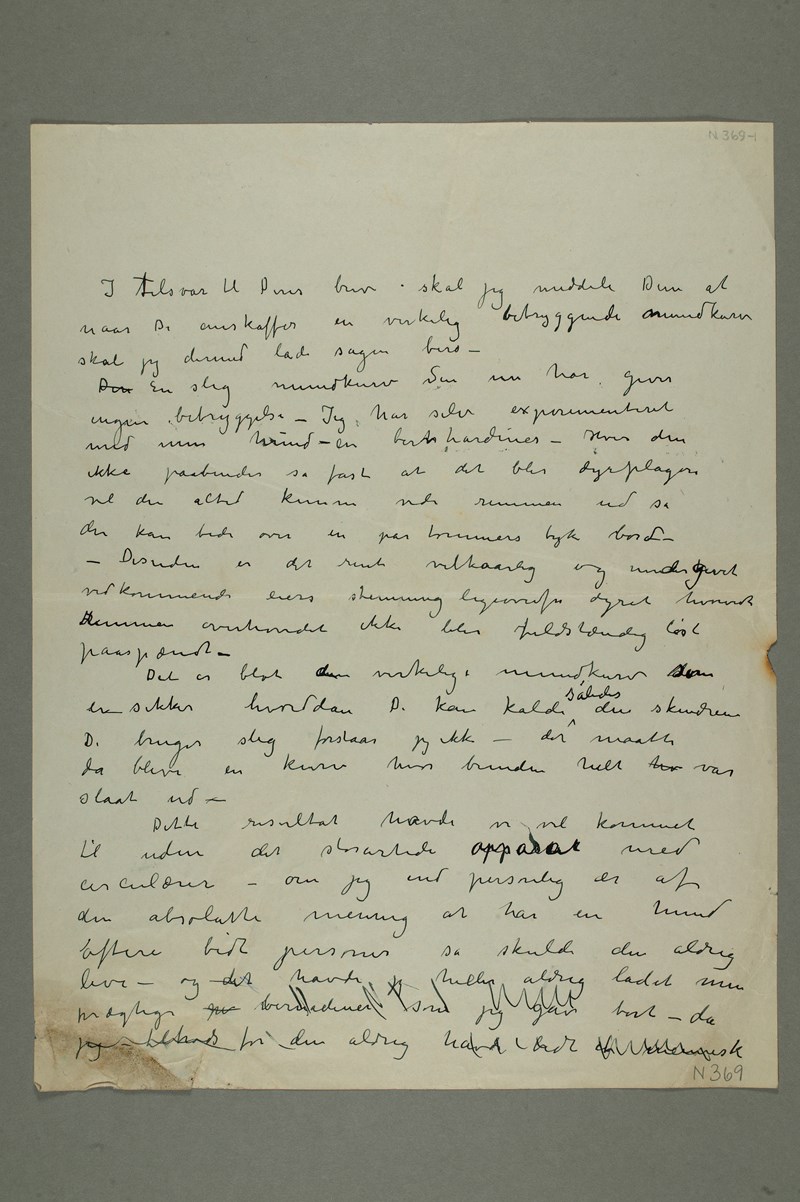 N 369-1
I tilsvar til Deres brev skal jeg meddele Dem at
naar De anskaffer en virkelig betryggende mundkurv
skal jeg dermed lade sagen bero –
Den En slig mundkurv Den nu har giver
ingen betryggelse – Jeg har selv experimenteret
med min hund – en bernhardiner – Hvis den
ikke paabindes så fast at det blir dyrplageri
vil den altid kunne vide remmen ud så
den kan bide over en par tommers tyk bord –
– Desuden er det rent vilkaarlig og undergivet
vedkommende eiers stemning ligeoverfor dyret hvorvidt
Remmen overhovedet ikke blir fuldstændig løst
paaspændt –
Det er blot den virkelige mundkurv som
er sikker hvordan De kan kalde således den skindrem
De bruger slig forstaar jeg ikke – det maatte
da blive en kurv hvor bunden helt var
slaat ud –
Dette resultat havde vi vel kommet
til uden det storartede apparat med
circulærer – om jeg end personlig er af
den absolutte mening at har en hund
oftere bidt personer så skulde den aldrig
leve – og det havde jeg heller aldrig ladet min
prægtige bernardiner som jeg gav bort – da
jeg for den aldrig havde bidt et mennesk
N 369